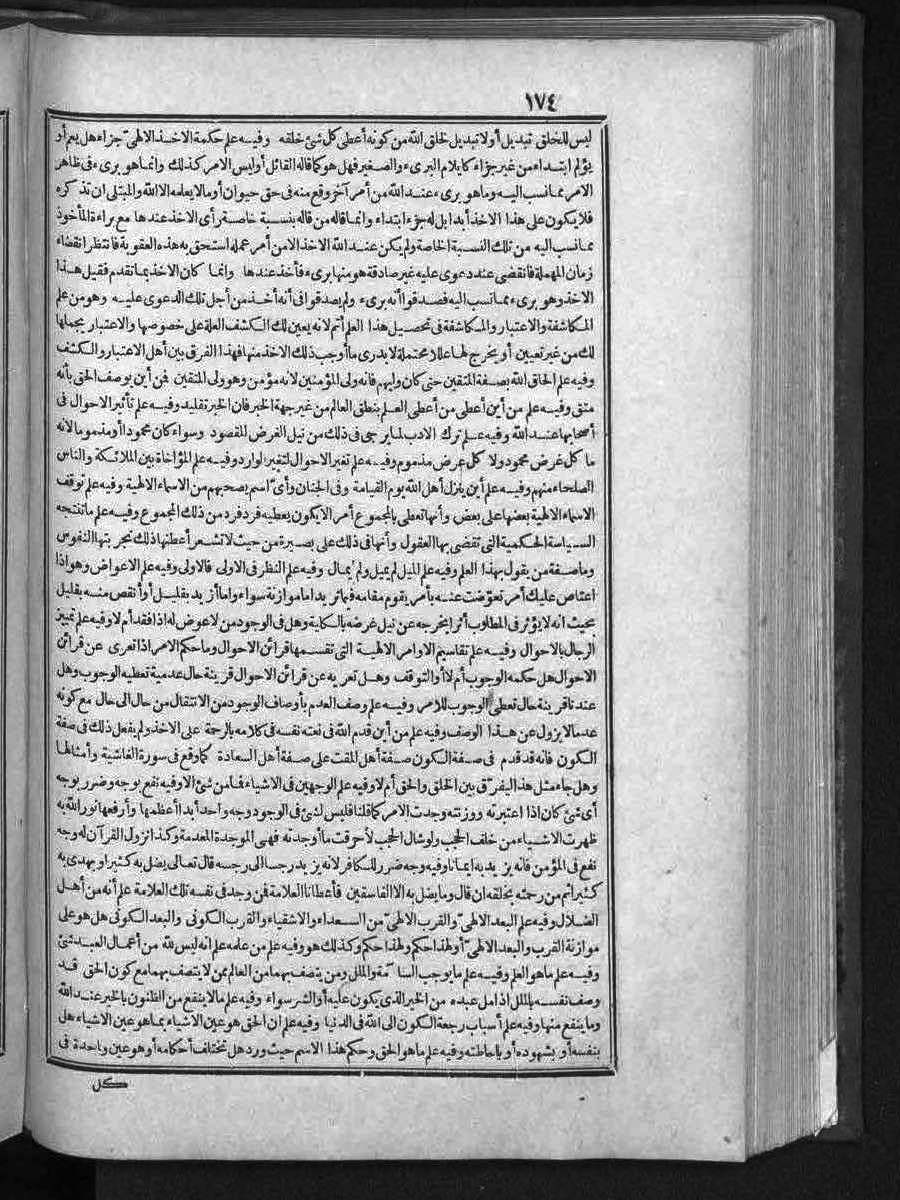 ١٧٤
ليس للخلق تبديل أو لا تبديل لخلق الله من كونه أعطى كل شئ خلقه وفيه علم حكمة الاخذ الالهى جزاء هل يعم أو
يؤلم ابتداء من غير جزاء كايلام البرىء والصغير فهل هو كما قاله القائل أوليس الامر كذلك وانما هو برىء فى ظاهر
الامر مما نسب اليه وما هو برىء عند الله من أمر آخر وقع منه فى حق حيوان أو مالا يعلمه الا الله والمبتلى ان تذكره
فلا يكون على هذا الاخذ أبدا بل له جزء ابتداء وانما قاله من قاله بنسبة خاصة رأى الاخذ عندها مع براءة المأخوذ
مما نسب اليه من تلك النسبة الخاصة ولم يكن عند الله الاخذ الا من أمر عمله استحق به هذه العقوبة فانتظر انقضاء
زمان المهملة فانقضى عند دعوى عليه غير صادقة هو منها برىء فأخذ عندها وانما كان الاخذ بما تقدم فقيل هذا
الاخذ وهو برىء مما نسب اليه فصدقوا أنه برىء ولم يصدقوا فى أنه أخذ من أجل تلك الدعوى عليه وهو من علم
المكاشفة والاعتبار والمكاشفة فى تحصيل هذا العلم أتم لانه يعين لك الكشف العلة على خصوصها والاعتبار يجملها
لك من غير تعيين أو يخرج لها عللا محتملة لا يدرى ما أوجب ذلك الاخذ منها فهذا الفرق بين أهل الاعتبار والكشف
وفيه علم الحاق الله بصفة المتقين حتى كان وليهم فانه ولى المؤمنين لانه مؤمن وهو ولى المتقين فمن أين يوصف الحق بأنه
متق وفيه علم من أين أعطى من أعطى العلم بنطق العالم من غير جهة الخبر فان الخبر تقليد وفيه علم تأثير الاحوال فى
أصحابها عند الله وفيه علم ترك الادب لما يرجى فى ذلك من نيل الغرض المقصود وسواء كان محمودا أو مذموما لانه
ما كل غرض محمود ولا كل غرض مذموم وفيه علم تغير الاحوال لتغير الوارد وفيه علم المؤاخاة بين الملائكة والناس
الصلحاء منهم وفيه علم أين ينزل أهل الله يوم القيامة وفى الجنان وأى اسم يصحبهم من الاسماء الالهية وفيه علم توقف
الاسماء الالهية بعضها على بعض وأنها تعطى بالمجموع أمرا لا يكون يعطيه فرد فرد من ذلك المجموع وفيه علم ما تنتجه
السياسة الحكمية التى تقضى بها العقول وأنها فى ذلك على بصيرة من حيث لا تشعر أعطتها ذلك تجربتها النفوس
وما صفة من يقول بهذا العلم وفيه علم الميل لم يميل ولم يمال وفيه علم النظر فى الاولى فالاولى وفيه علم الاعواض وهو اذا
اعتاص عليك أمر تعوّضت عنه بأمر يقوم مقامه فيما تريد اما موازنة سواء واما أزيد بقليل أو أنقص منه بقليل
بحيث انه لا يؤثر فى المطلوب أثرا يخرجه عن نيل غرضه بالكلية وهل فى الوجود من لا عوض له اذا فقد أم لا وفيه علم تمييز
الرجال بالاحوال وفيه علم تقاسيم الاوامر الالهية التى تقسمها قرائن الاحوال وما حكم الامر اذا تعرى عن قرائن
الاحوال هل حكمه الوجوب أم لا أو التوقف وهل تعريه عن قرائن الاحوال قرينة حال عدمية تعطيه الوجوب وهل
عندنا قرينة حال تعطى الوجوب للامر وفيه علم وصف العدم بأوصاف الوجود من الانتقال من حال الى حال مع كونه
عدما لا يزول عن هذا الوصف وفيه علم من أين قدم الله فى نعته نفسه فى كلامه بالرحمة على الاخذ ولم يفعل ذلك فى صفة
الكون فانه قد قدم فى صفة الكون صفة أهل المقت على صفة أهل السعادة كما وقع فى سورة الغاشية وأمثالها
وهل جاء مثل هذا ليفرق بين الخلق والحق أم لا وفيه علم الوجهين فى الاشياء فما من شئ الا وفيه نفع بوجه وضرر بوجه
أى شئ كان اذا اعتبرته ووزنته وجدت الامر كما قلنا فليس لشئ فى الوجود وجه واحد أبدا أعظمها وأرفعها نور الله به
ظهرت الاشياء من خلف الحجب ولو شال الحجب لأحرقت ما أوجدته فهى الموجدة المعدمة وكذا نزول القرآن له وجه
نفع فى المؤمن فانه يزيد به ايمانا وفيه وجه ضرر للكافر لانه يزيد رجسا الى رجسه قال تعالى يضل به كثيرا ويهدى به
كثيرا ثم من رحمته بخلقه ان قال وما يضل به الا الفاسقين فأعطانا العلامة فمن وجد فى نفسه تلك العلامة علم أنه من أهل
الضلال وفيه علم البعد الالهى والقرب الالهى من السعداء والاشقياء والقرب الكونى والبعد الكونى هل هو على
موازنة القرب والبعد الالهى أو لهذا حكم ولهذا حكم وكذلك هو وفيه علم من علمه علم انه ليس لله من أعمال العبد شئ
وفيه علم ما هو العلم وفيه علم ما يوجب السآمة والملل ومن يتصف بهما من العالم ممن لا يتصف بهما مع كون الحق قد
وصف نفسه بالملل اذا مل عبده من الخير الذى يكون عليه أو الشر سواء وفيه علم مالا ينتفع من الظنون بالخير عند الله
وما ينتفع منها وفيه علم أسباب رجعة الكون الى الله فى الدنيا وفيه علم ان الحق هو عين الاشياء بما هو عين الاشياء هل
بنفسه أو بشهوده أو باحاطته وفيه علم ما هو الحق وحكم هذا الاسم حيث ورد هل تختلف أحكامه أو هو عين واحدة فى
كل